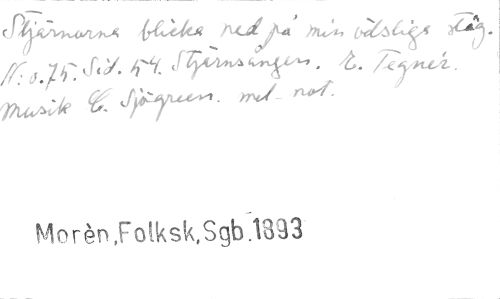 Stjärnorna blicka ned på min ödsliga stig.
N:o. 75. Sid. 54. Stjernsången. E. Tegnér.
Musik C. Sjögreen. mel. not.
Morèn,Folksk,Sgb.1893